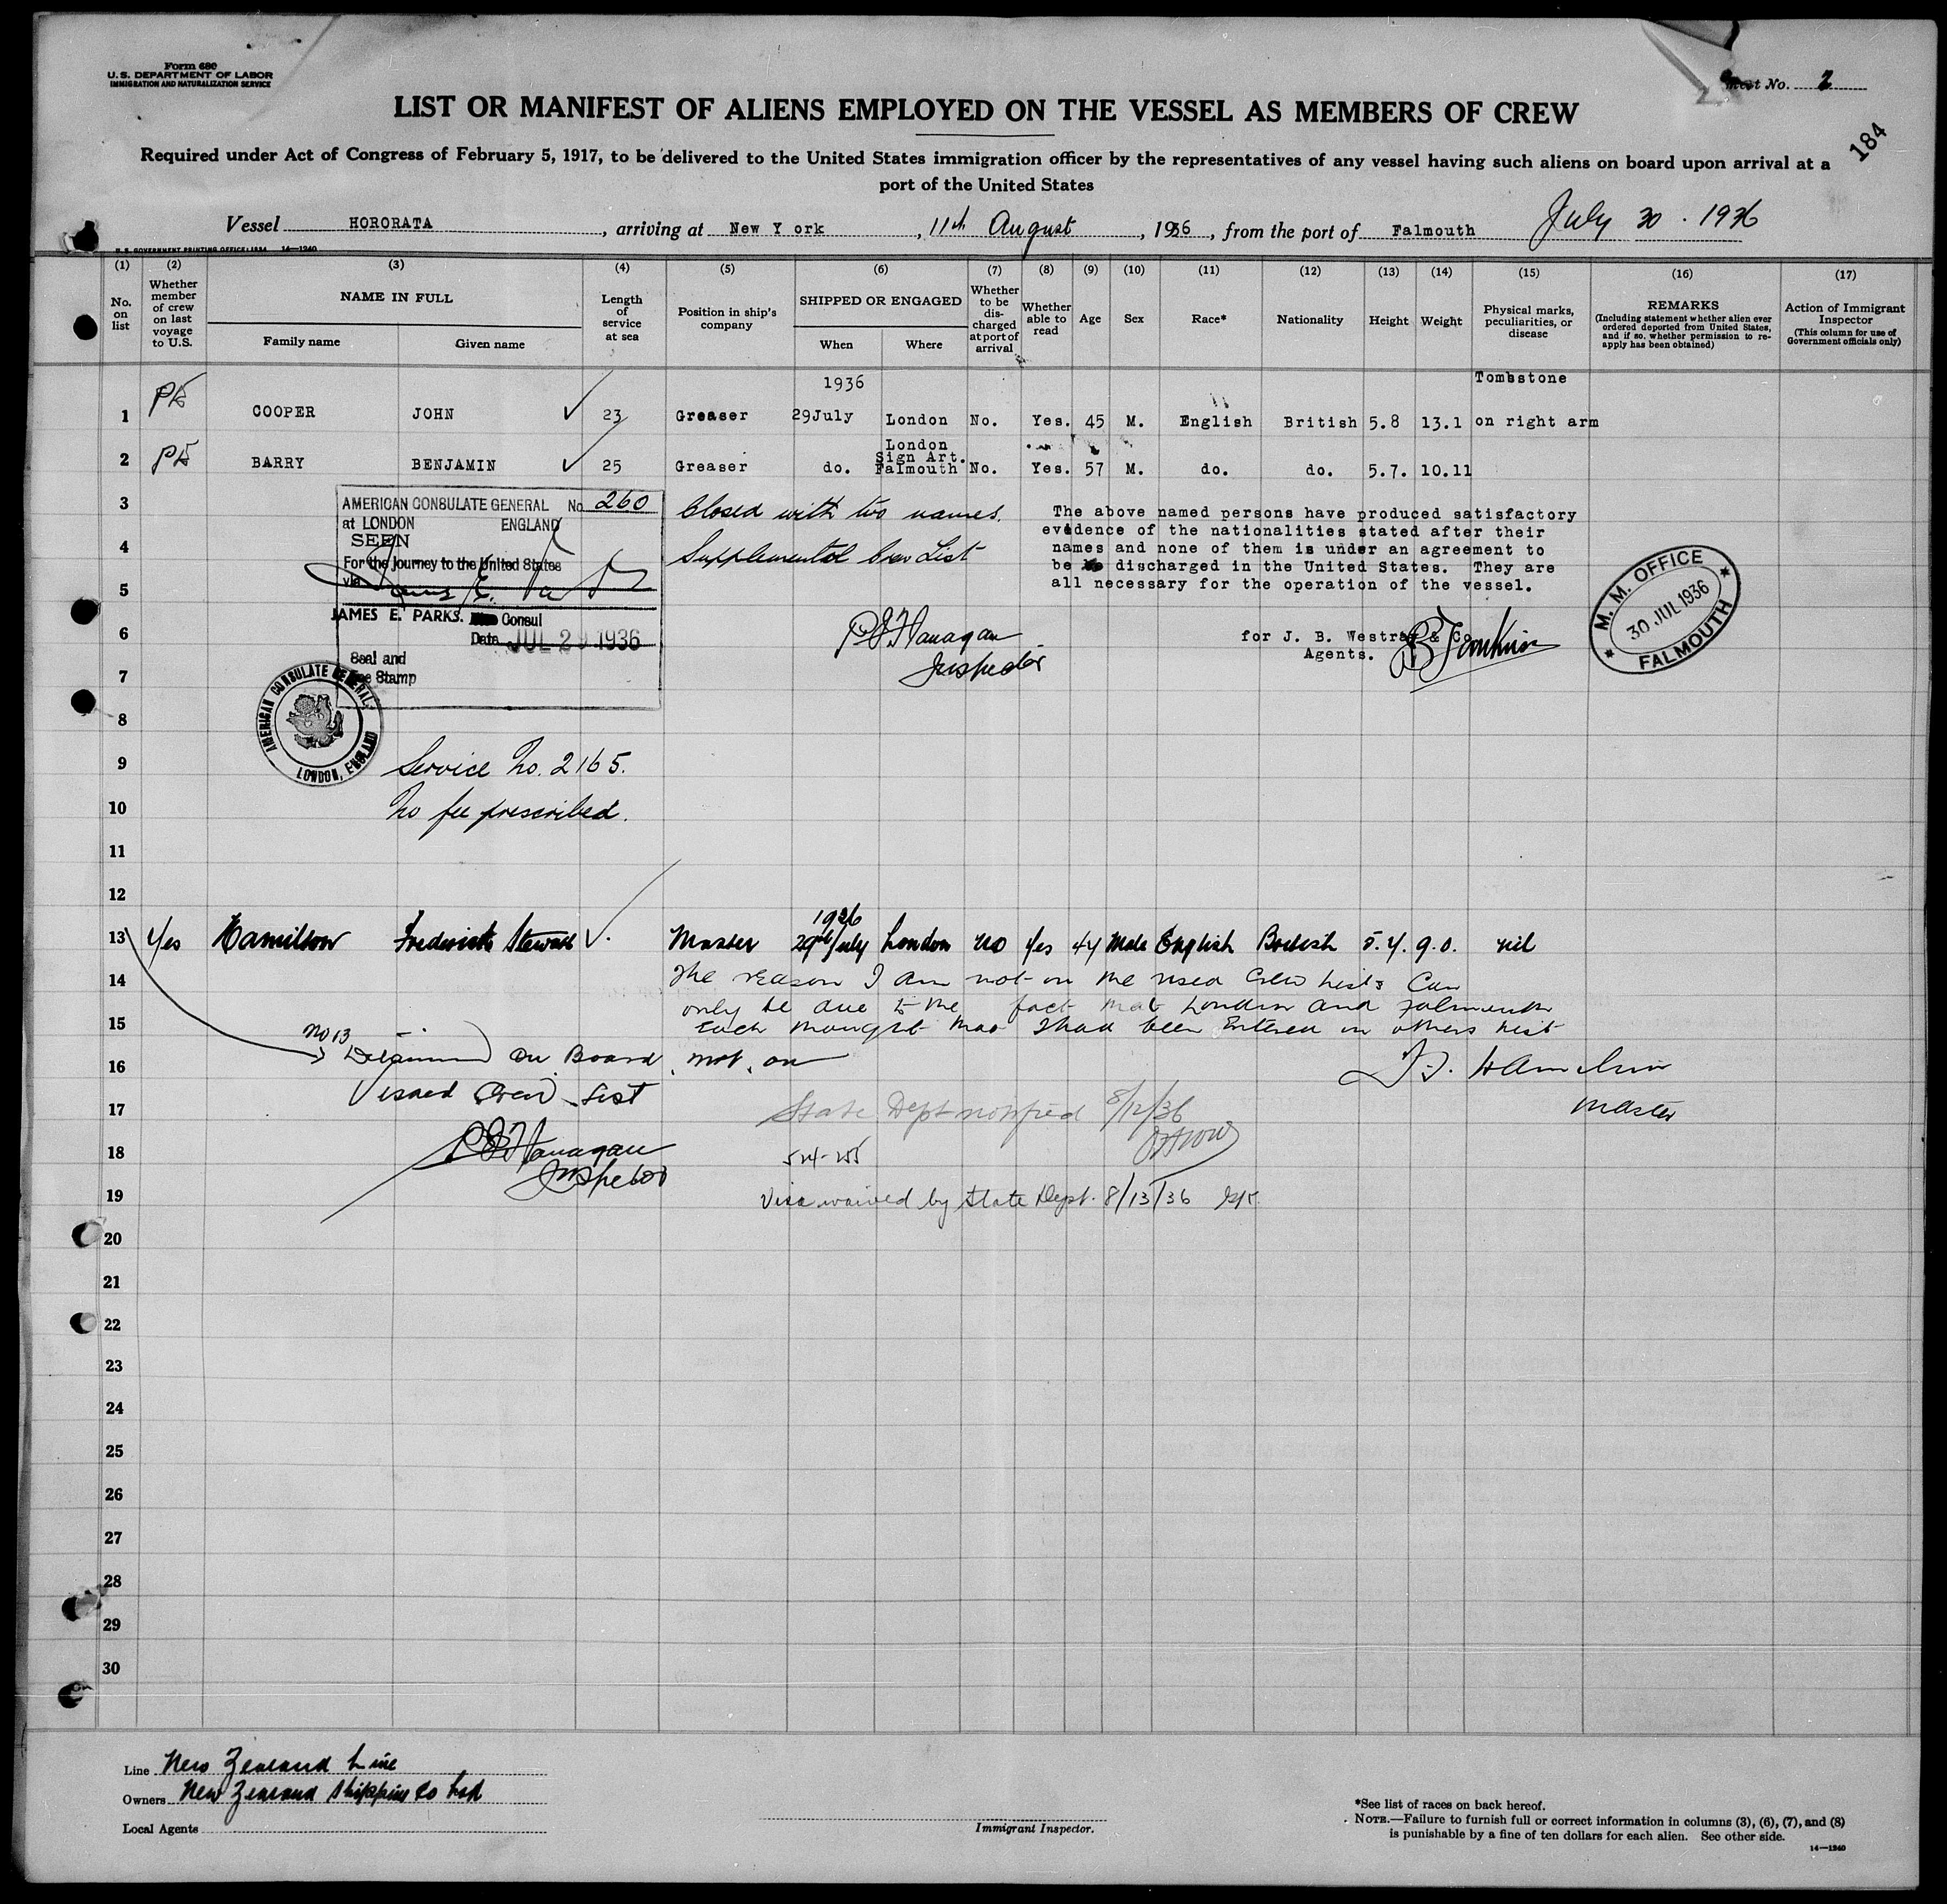 Form 680
U. S. DEPARTMENT OF LABOR
IMMIGRATION AND NATURALIZATION SERVICE
No. 2
184
LIST OR MANIFEST OF ALIENS EMPLOYED ON THE VESSEL AS MEMBERS OF CREW
Required under Act of Congress of February 5, 1917, to be delivered to the United States immigration officer by the representatives of any vessel having such aliens on board upon arrival at a
port of the United States
Vessel HORORATA, arriving at New Y ork, 11th August, 1936, from the port of Falmouth July 30. 1936
U. S. GOVERNMENT PRINTING OFFICE: 1934 14—1240
(1) (2) (3) (4) (5) (6) (7) (8) (9) (10) (11) (12) (13) (14) (15) (16) (17)
No. on list
Whether member of crew on last voyage to U.S.
NAME IN FULL
Family name
Given name
Length of service at sea
Position in ship's company
SHIPPED OR ENGAGED
When
Where
Whether to be discharged at port of arrival
Whether able to read
Age
Sex
Race*
Nationality
Height
Weight
Physical marks, peculiarities, or disease
REMARKS
(Including statement whether alien ever ordered deported from United States, and if so, whether permission to re-apply has been obtained)
Action of Immigrant Inspector
(This column for use of Government officials only)
1936 Tombstone
1 COOPER JOHN 23 Greaser 29July London No. Yes. 45 M. English British 5.8 13.1 on right arm
London
Sign Art.
2 BARRY BENJAMIN 25 Greaser do. Falmouth No. Yes. 57 M. do. do. 5.7. 10.11
3
4
5
6
7
8
9
10
11
12
AMERICAN CONSULATE GENERAL No. 260
at LONDON ENGLAND
SEEN
For the Journey to the United States
via
JAMES E. PARKS. Consul
Date JUL 29 1936
Seal and
Fee Stamp
AMERICAN CONSULATE GENERAL, LONDON, ENGLAND
Closed with two names.
Supplemental Crew List
P E Flanagan
Inspector
The above named persons have produced satisfactory
evidence of the nationalities stated after their
names and none of them is under an agreement to
be discharged in the United States. They are
all necessary for the operation of the vessel.
for J. B. Westray & Co
Agents.
M. M. OFFICE
30 JUL 1936
FALMOUTH
Service No. 2165.
No fee prescribed.
1936
13 Yes Hamilton Frederick Stewart Master 29th July London no Yes 44 Male English British 5.4. 9.0. nil
14
15
16
17
18
19
20
21
22
23
24
25
26
27
28
29
30
The reason I am not on the visaed Crew Lists Can
only be due to the fact that London and Falmouth
Each thought that I had been Entered in others List
F. S. Hamilton
Master
No 13
On Board, not on
Visaed Crew List
P E Flanagan
Inspector
State Dept notified 8/12/36
Visa waived by State Dept. 8/13/36
Line New Zealand Line
Owners New Zealand Shipping Co Ltd
Local Agents
Immigrant Inspector.
*See list of races on back hereof.
NOTE.—Failure to furnish full or correct information in columns (3), (6), (7), and (8)
is punishable by a fine of ten dollars for each alien. See other side.
14—1240